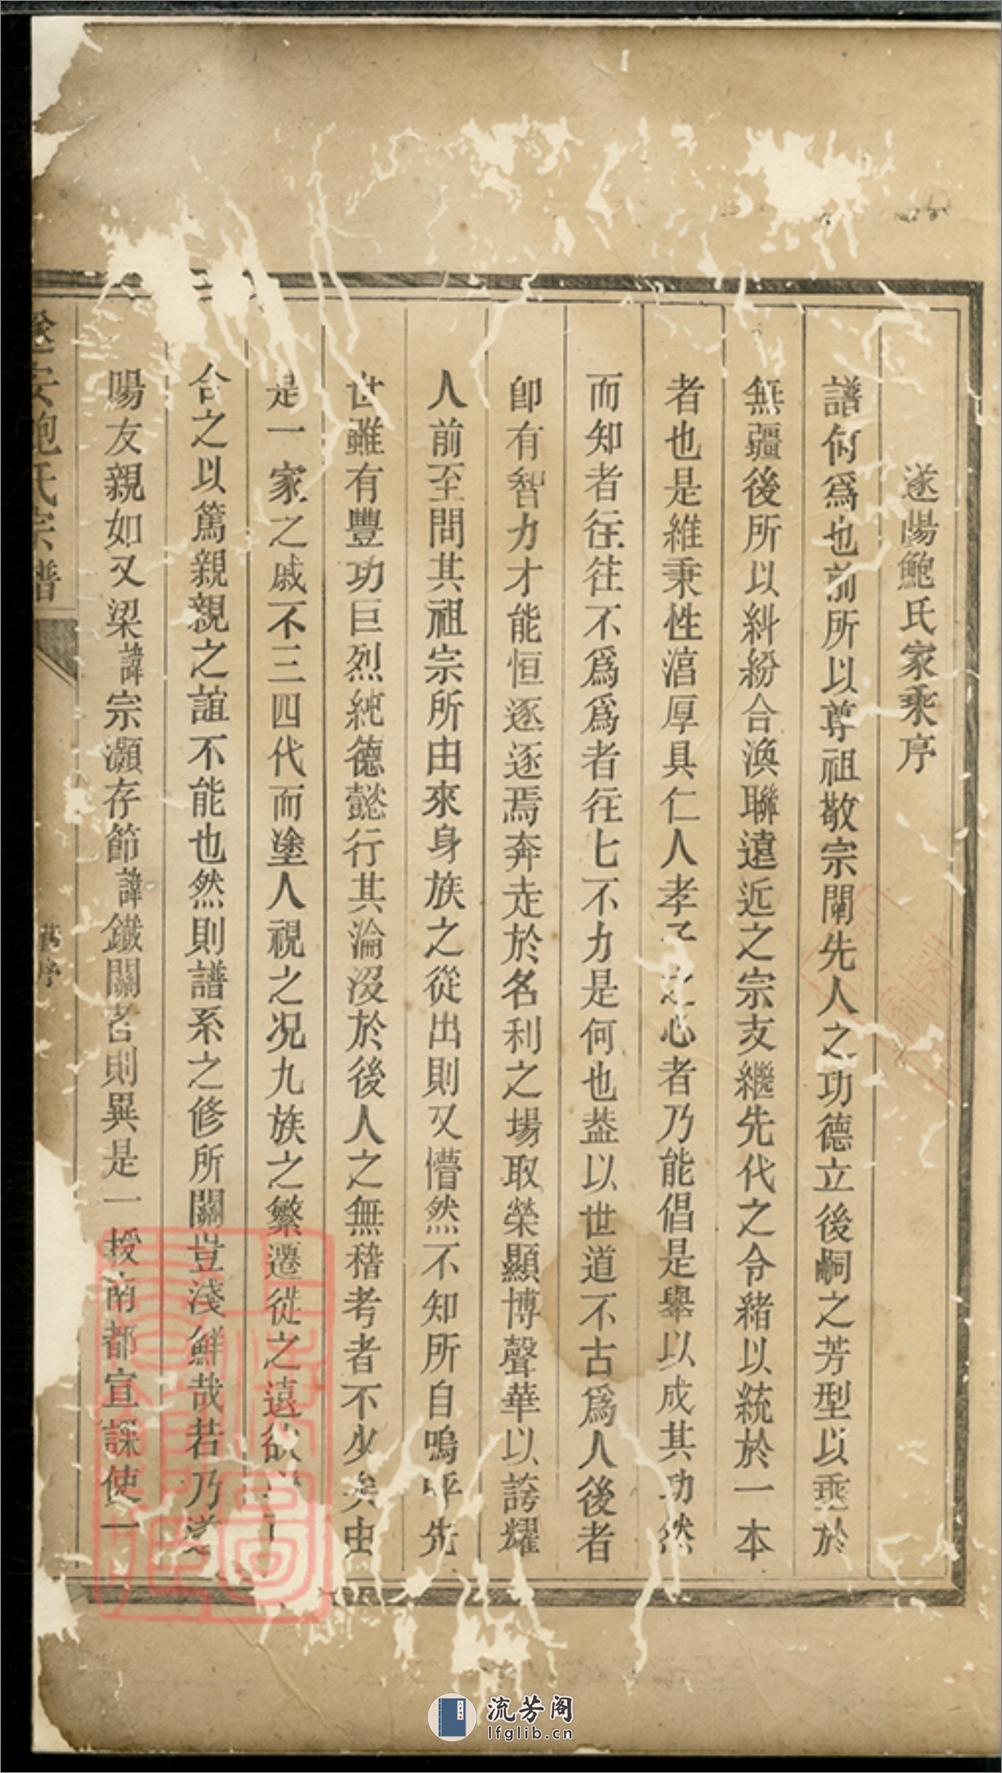 遂陽鮑氏家乘序
譜何爲也前所以尊祖敬宗闡先人之功德立後嗣之芳型以垂於
無疆後所以糾紛合渙聯遠近之宗支繼先代之令緒以統於一本
者也是維秉性湻厚具仁人孝子之心者乃能倡是舉以成其功然
而知者往往不爲爲者往七不力是何也盖以世道不古爲人後者
卽有智力才能恒逐逐焉奔走於名利之場取榮顯博聲華以誇耀
人前至問其祖宗所由來身族之從出則又懵然不知所自嗚呼先
世雖有豐功巨烈純德懿行其淪沒於後人之無稽考者不少矣由
是一家之戚不三四代而塗人視之况九族之繁遷徙之遠欲
合之以篤親親之誼不能也然則譜系之修所關豈淺鮮哉若乃遂
陽友親如又梁諱宗灝存節諱鐵關者則異是一授南都宣課使一
遂安鮑氏宗譜
舊序
流芳阁
lfglib.cn